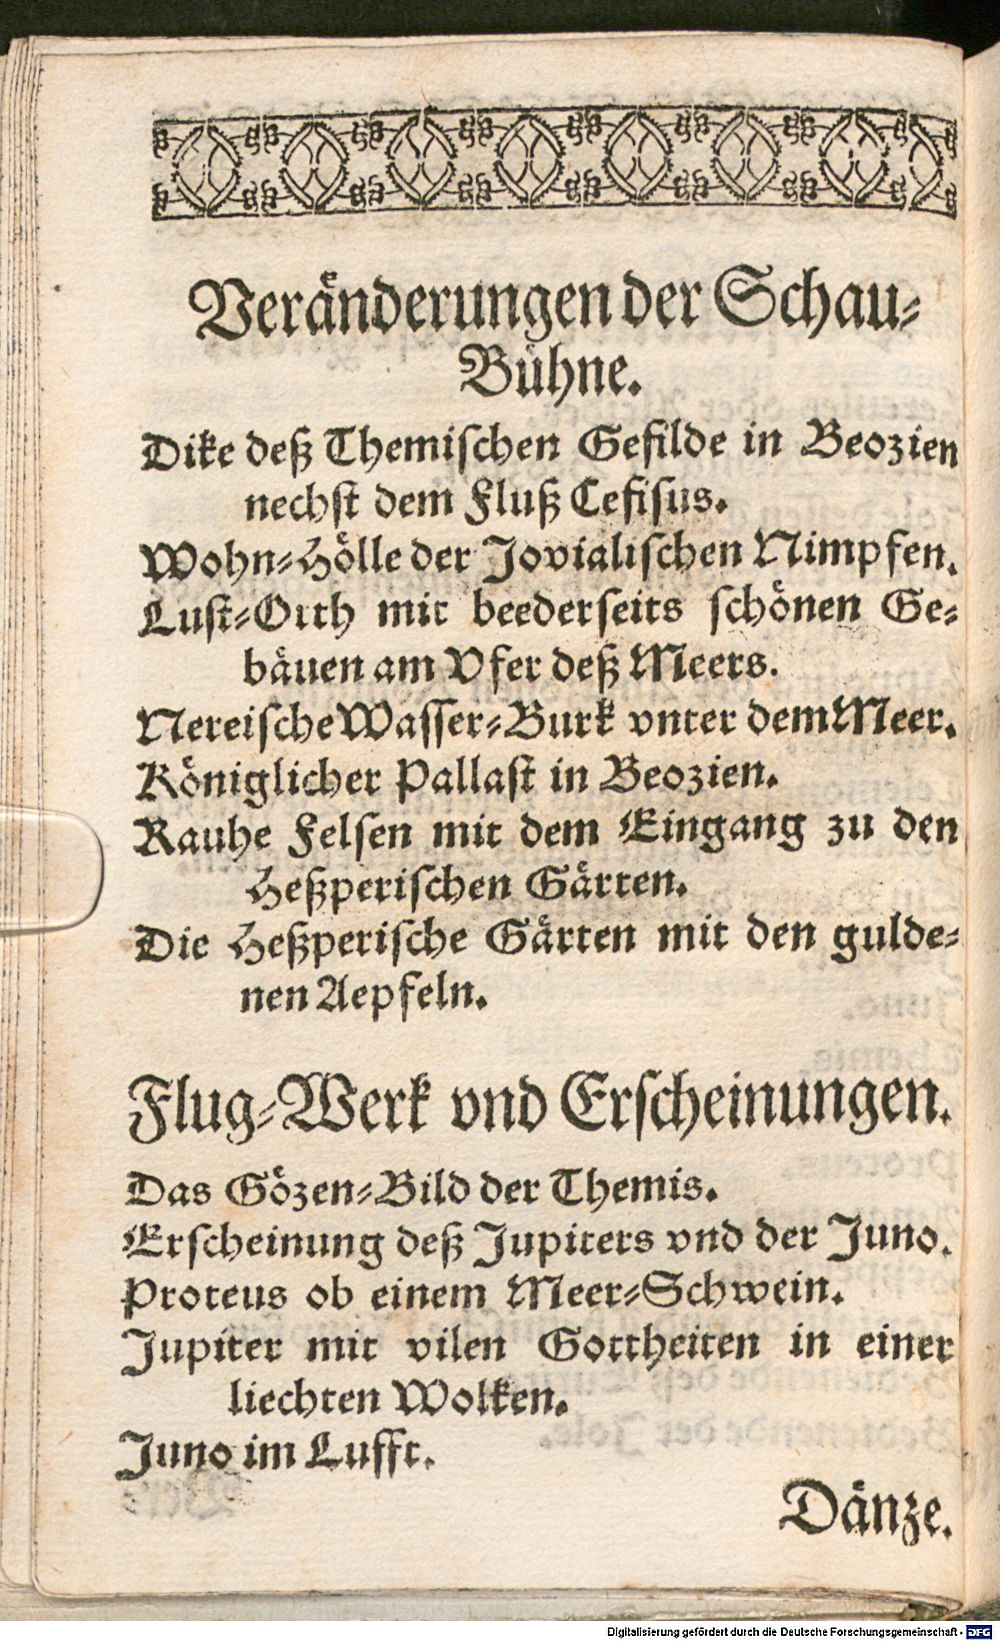 Veränderungen der Schau-
Bühne.
Dike deß Themischen Gefilde in Beozien
nechst dem Fluß Cefisus.
Wohn-Hölle der Jovialischen Nimpfen.
Lust-Orth mit beederseits schönen Ge-
bäuen am Vfer deß Meers.
Nereische Wasser-Burk vnter dem Meer.
Königlicher Pallast in Beozien.
Rauhe Felsen mit dem Eingang zu den
Heßperischen Gärten.
Die Heßperische Gärten mit den gulde-
nen Aepfeln.
Flug-Werk vnd Erscheinungen.
Das Gözen-Bild der Themis.
Erscheinung deß Jupiters vnd der Juno.
Proteus ob einem Meer-Schwein.
Jupiter mit vilen Gottheiten in einer
liechten Wolken.
Juno im Lufft.
Dänze.
Digitalisierung gefördert durch die Deutsche Forschungsgemeinschaft - DFG